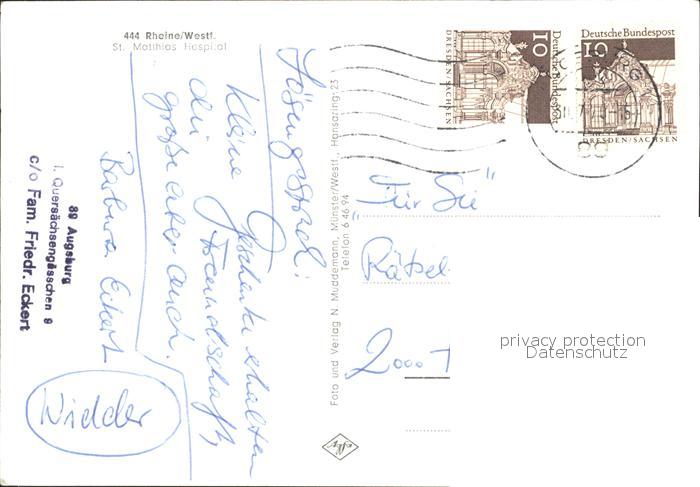 444 Rheine/Westf.
St. Mathias Hospital
Lösungsspruch:
Kleine Geschenke erhalten
die Freundschaft,
große aber auch.
Barbara Eckert
89 Augsburg
i. Quersächsengässchen 9
c/o Fam. Friedr. Eckert
Widder
Foto und Verlag N. Muddemann, Münster/Westf., Hansaring 25
Telefon 6 46 94
Deutsche Bundespost
10
DRESDEN/SACHSEN
Deutsche Bundespost
10
DRESDEN/SACHSEN
89
„Für Sie"
Rätsel
2000
privacy protection
Datenschutz